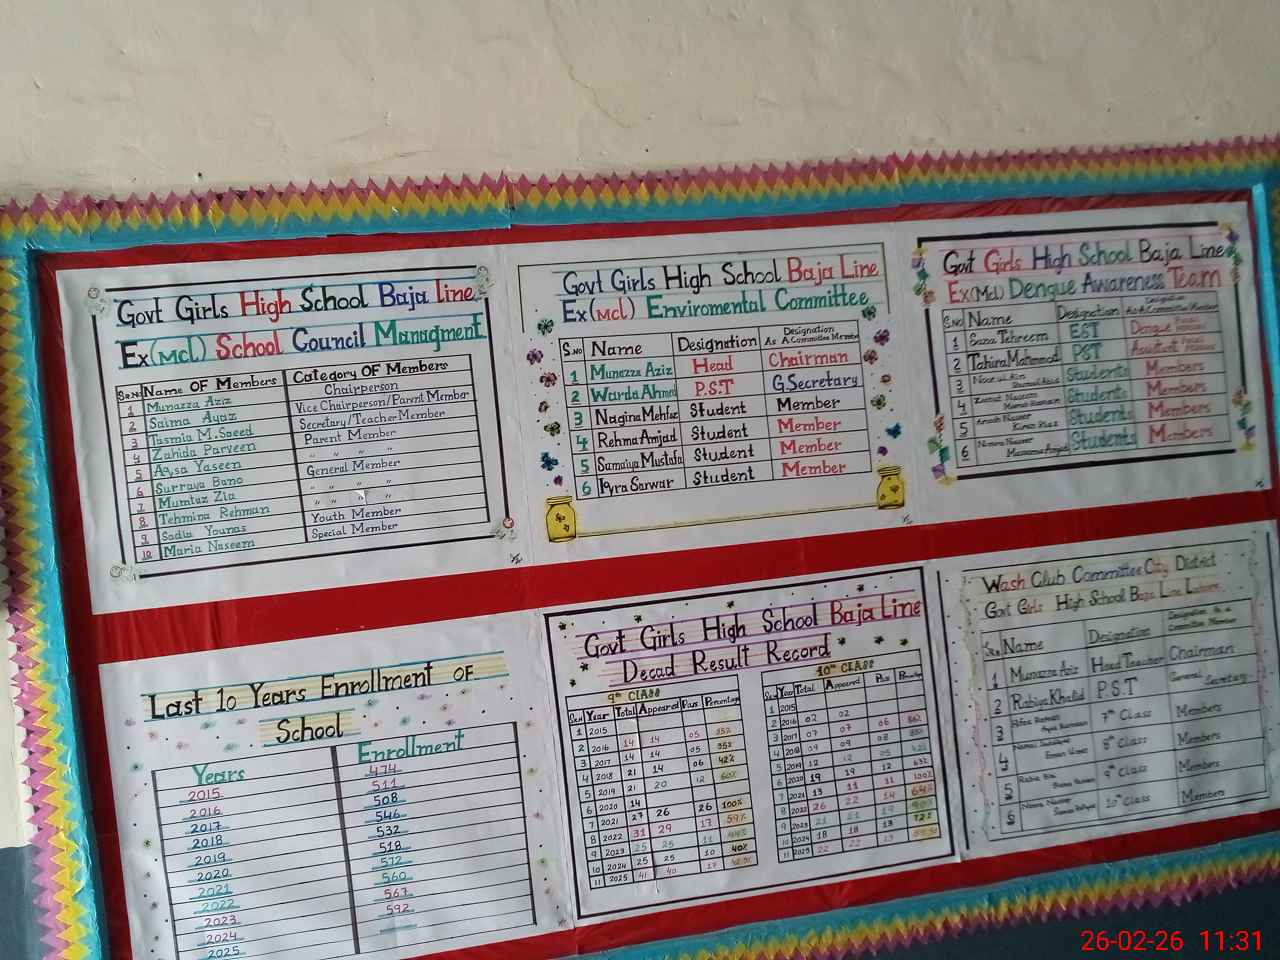 Govt Girls High School Baja Line
Ex(MCl) School Council Managment
Sr.No Name OF Members Category OF Members
1 Munazza Aziz Chairperson
2 Saima Ayaz Vice Chairperson/Parent Member
3 Tasmia M.Saeed Secretary/Teacher Member
4 Zahida Parveen Parent Member
5 Aqsa Yaseen " " " "
6 Surraya Bano General Member
7 Mumtaz Zia " " " "
8 Tehmina Rehman " " " "
9 Sadia Younas Youth Member
10 Maria Naseem Special Member
Govt Girls High School Baja Line
Ex(MCl) Enviromental Committee
S.No Name Designation Designation As A Committee Member
1 Munazza Aziz Head Chairman
2 Warda Ahmed P.S.T G.Secretary
3 Nagina Mehfaz Student Member
4 Rehma Amjad Student Member
5 Sumaiya Mustafa Student Member
6 Iqra Sarwar Student Member
Govt Girls High School Baja Line
Ex(Mcl) Dengue Awareness Team
S.No Name Designation Designation As A Committee Member
1 Sana Tehreem EST Dengue
2 Tahira Mahmood PST Assistant
3 Students Members
4 Students Members
5 Students Members
6 Students Members
Last 10 Years Enrollment OF
School
Years Enrollment
2015 474
2016 511
2017 508
2018 546
2019 532
2020 518
2021 572
2022 560
2023 567
2024 592
2025
Govt Girls High School Baja Line
Decad Result Record
9th CLASS
Sr.No Year Total Appeared Pass Percentage
1 2015
2 2016 14 14 05 35%
3 2017 14 14 05 35%
4 2018 21 14 06 42%
5 2019 21 20 12 60%
6 2020 14
7 2021 27 26 26 100%
8 2022 31 29 17 59%
9 2023 25 25 11 44%
10 2024 25 25 10 40%
11 2025 41 40 17
10th CLASS
Sr.No Year Total Appeared Pass Percentage
1 2015
2 2016 02 02
3 2017 07 07 06
4 2018 09 09 08
5 2019 12 12 05
6 2020 19 19 12 63%
7 2021 13 11 11 100%
8 2022 26 22 14 64%
9 2023 21 21 19 90%
10 2024 18 18 13 72%
11 2025 22 22 13
Wash Club Committee City District
Govt Girls High School Baja Line Lahore
Sr.No Name Designation Designation As a Committee Member
1 Munazza Aziz Head Teacher Chairman
2 Rabiya Khalid P.S.T General Secretary
3 7th Class Members
4 8th Class Members
5 9th Class Members
6 10th Class Members
26-02-26 11:31